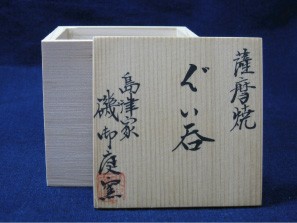 薩摩焼
ぐい呑
島津家
磯御庭窯